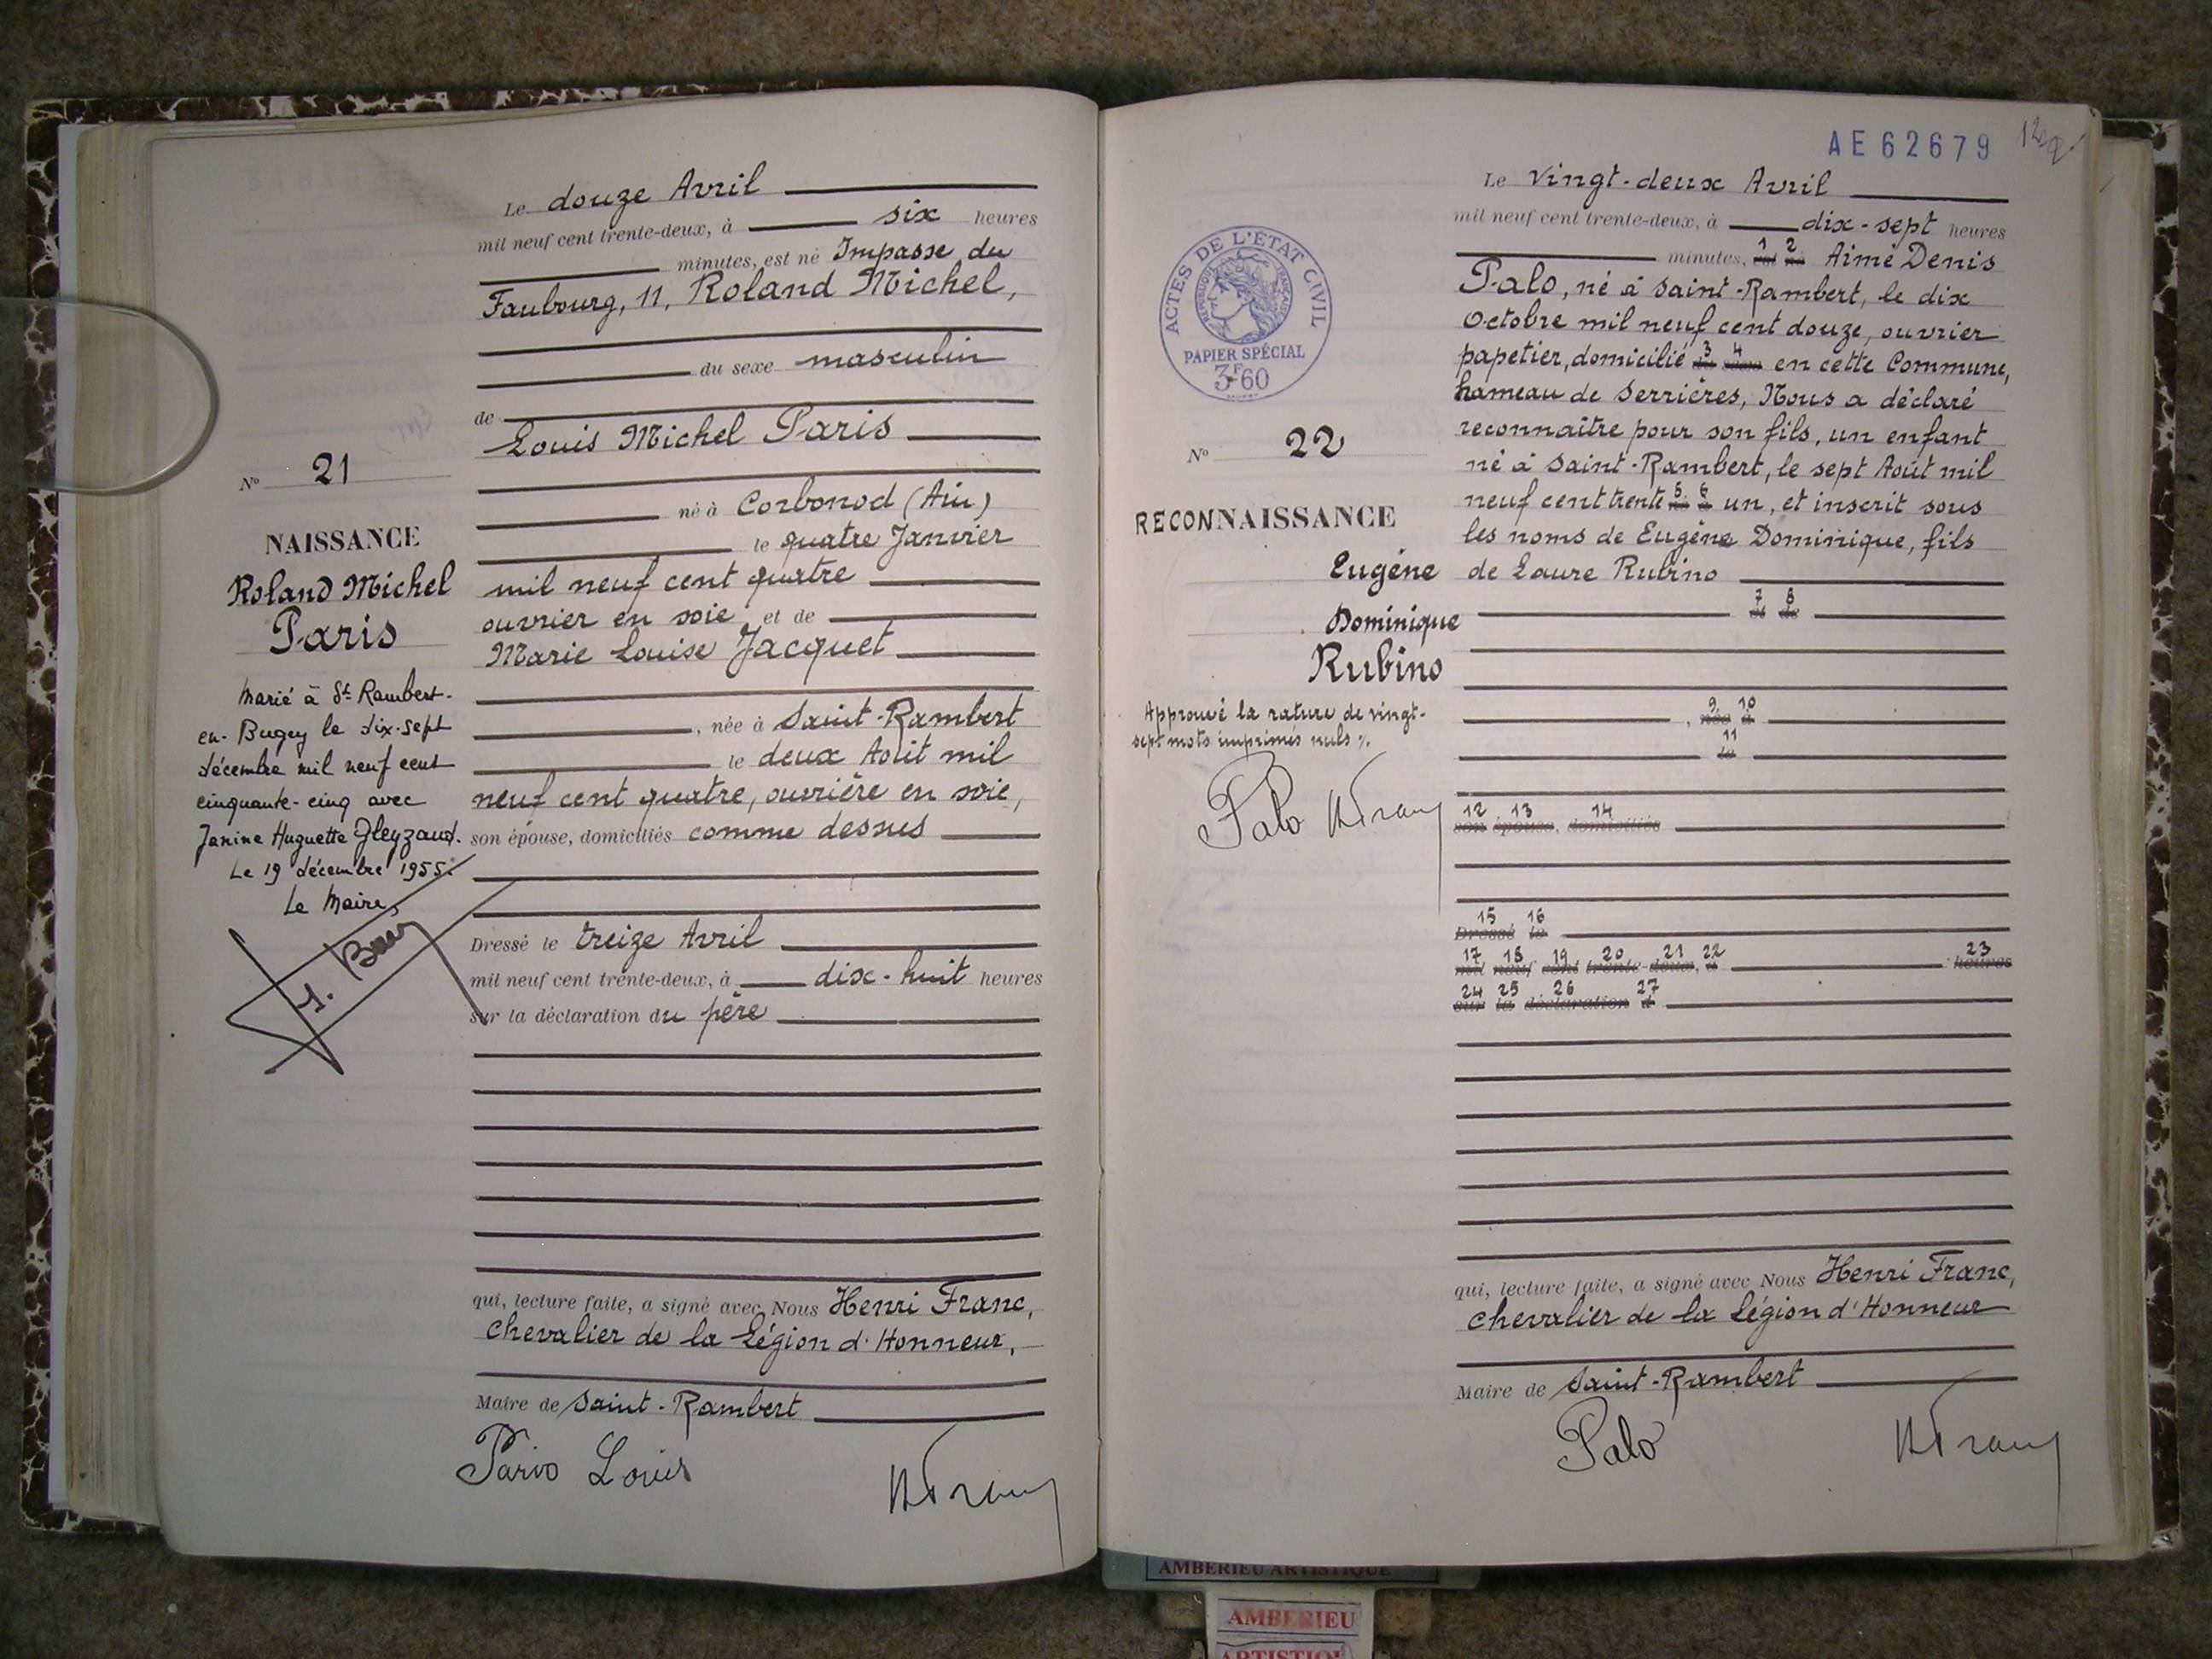 Le douze Avril
mil neuf cent trente-deux, à six heures
minutes, est né Impasse du
Faubourg, 11, Roland Michel,
du sexe masculin
de
Louis Michel Paris
né à Corbonod (Ain)
le quatre Janvier
mil neuf cent quatre
ouvrier en soie et de
Marie Louise Jacquet
, née à Saint-Rambert
le deux Août mil
neuf cent quatre, ouvrière en soie,
son épouse, domiciliés comme dessus
Dressé le treize Avril
mil neuf cent trente-deux, à dix-huit heures
sur la déclaration du père
qui, lecture faite, a signé avec Nous Henri Franc,
chevalier de la Légion d'Honneur,
Maire de Saint-Rambert
Paris Louis
HFranc
N° 21
NAISSANCE
Roland Michel
Paris
Marié à St Rambert-
en-Bugey le dix-sept
décembre mil neuf cent
cinquante-cinq avec
Janine Huguette Gleyzaud.
Le 19 décembre 1955.
Le Maire,
AE 62679
Le vingt-deux Avril
mil neuf cent trente-deux, à dix-sept heures
1 2
minutes, est né Aimé Denis
Palo, né à Saint-Rambert, le dix
Octobre mil neuf cent douze, ouvrier
3 4
papetier, domicilié du sexe en cette Commune,
hameau de Serrières, Nous a déclaré
reconnaître pour son fils, un enfant
né à Saint-Rambert, le sept Août mil
5 6
neuf cent trente né à un, et inscrit sous
les noms de Eugène Dominique, fils
de Laure Rubino
7 8
et de
9 10
, née à
11
le
12 13 14
son épouse, domiciliés
15 16
Dressé le
17 18 19 20 21 22 23
mil neuf cent trente-deux, à heures
24 25 26 27
sur la déclaration d
qui, lecture faite, a signé avec Nous Henri Franc,
chevalier de la Légion d'Honneur
Maire de Saint-Rambert
Palo
HFranc
ACTES DE L'ETAT CIVIL
RÉPUBLIQUE FRANÇAISE
PAPIER SPÉCIAL
3F60
N° 22
RECONNAISSANCE
Eugène
Dominique
Rubino
Approuvé la rature de vingt-
sept mots imprimés nuls %.
Palo HFranc
AMBERIEU ARTISTIQUE
AMBERIEU
ARTISTIQU